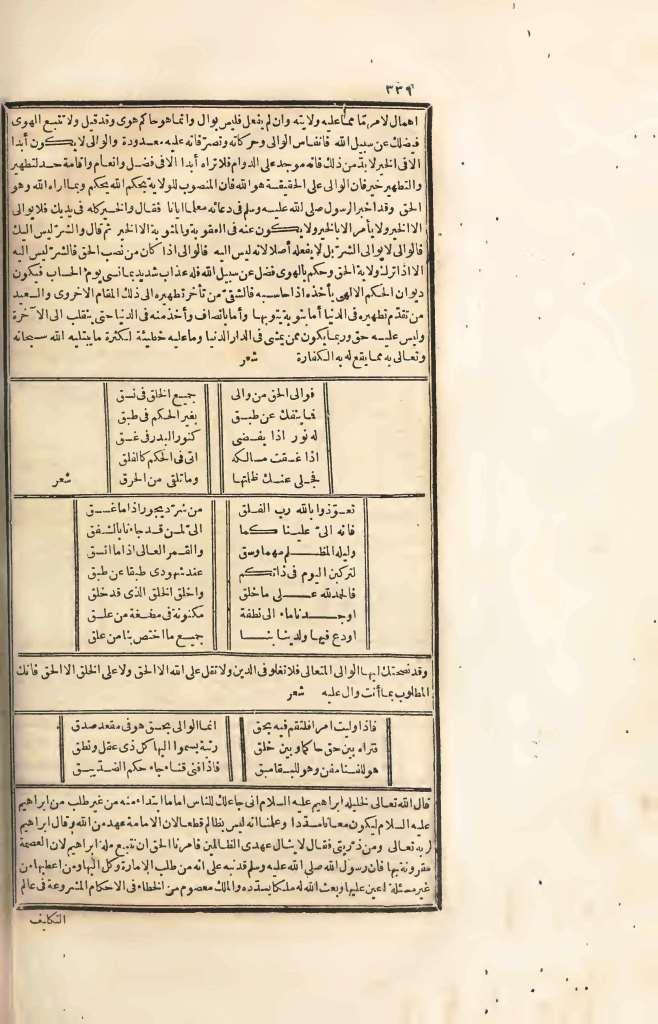 ٣٣٩
اهمال لامر مما عليه ولايته وان لم يفعل فليس بوال وانما هو حاكم هوى وقد قيل ولا تتبع الهوى
فيضلك عن سبيل الله فانفاس الوالى وحركاته وتصرفاته عليه معدودة والوالى لا يكون أبدا
الا فى الخير لا بد من ذلك فانه موجد على الدوام فلا تراه أبدا الا فى فضل وانعام واقامة حد لتطهير
والتطهير خير فان الوالى على الحقيقة هو الله فان المنصوب للولاية بحكم الله يحكم وبما اراه الله وهو
الحق وقد اخبر الرسول صلى الله عليه وسلم فى دعائه معلما ايانا فقال والخير كله فى يديك فلا يوالى
الا الخير ولا يأمر الا بالخير ولا يكون عنه فى العقوبة والمثوبة الا الخير ثم قال والشر ليس اليك
فالوالى لا يوالى الشر بل لا يفعله أصلا لانه ليس اليه فالوالى اذا كان من نصب الحق فالشر ليس اليه
الا اذا ترك ولاية الحق وحكم بالهوى فضل عن سبيل الله فله عذاب شديد بما نسى يوم الحساب فيكون
ديوان الحكم الالهى يأخذه اذا حاسبه فالشقى من تأخر تطهيره الى ذلك المقام الاخروى والسعيد
من تقدم تطهيره فى الدنيا أما بتوبة يتوبها وأما بانصاف وأخذ منه فى الدنيا حتى ينقلب الى الآخرة
وليس عليه حق وربما يكون ممن يمشى فى الدار الدنيا وما عليه خطيئة لكثرة ما يبتليه الله سبحانه
وتعالى به مما يقع له به الكفارة شعر
فوالى الحق من والى جميع الخلق فى نسق
فما ينفك عن طبق بغير الحكم فى طبق
له نور اذا يفضى كنور البدر فى غسق
اذا غسقت مسالكه اتى فى الحكم كالفلق
فجلى عنك ظلمتها وما تلقى من الحرق شعر
تعوذوا بالله رب الفلق من شر ديجور اذا ما غسق
فانه الى علينا كما الى لمن قد جاءنا بالشفق
وليله المظلم مهما وسق والقمر العالى اذا ما اتسق
لتركبن اليوم فى ذاتكم عند شهودى طبقا عن طبق
فالحمد لله على ما خلق واخلق الخلق الذى قد خلق
اوجدنا ماء الى نطفة مكنونة فى مضغة من علق
اودع فيها ولدينا بنا جميع ما اختص بنا من علق
وقد نصحتك ايها الوالى المتعالى فلا تغلو فى الدين ولا تقل على الله الا الحق ولا على الخلق الا الحق فانك
المطلوب بما أنت وال عليه شعر
فاذا وليت امرا فلتقم فيه بحق انما الوالى بحق هو فى مقعد صدق
فتراه بين حق حاكما وبين خلق رتبة يسموا اليها كل ذى عقل ونطق
هو للفنا مفن وهو للبقا مبق فاذا فنى فناء جاء حكم الضد يبق
قال الله تعالى لخليله ابراهيم عليه السلام انى جاعلك للناس اماما ابتداء منه من غير طلب من ابراهيم
عليه السلام ليكون معانا مسددا وعلمنا انه ليس بظالم قطعا لان الامامة عهد من الله وقال ابراهيم
لربه تعالى ومن ذريتى فقال لا ينال عهدى الظالمين فامرنا الحق ان نتبع ملة ابراهيم لان العصمة
مقرونة بها فان رسول الله صلى الله عليه وسلم قد نبه على انه من طلب الامارة وكل اليها ومن اعطيها من
غير مسئلة اعين عليها وبعث الله له ملكا يسدده والملك معصوم من الخطاء فى الاحكام المشروعة فى عالم
التكليف